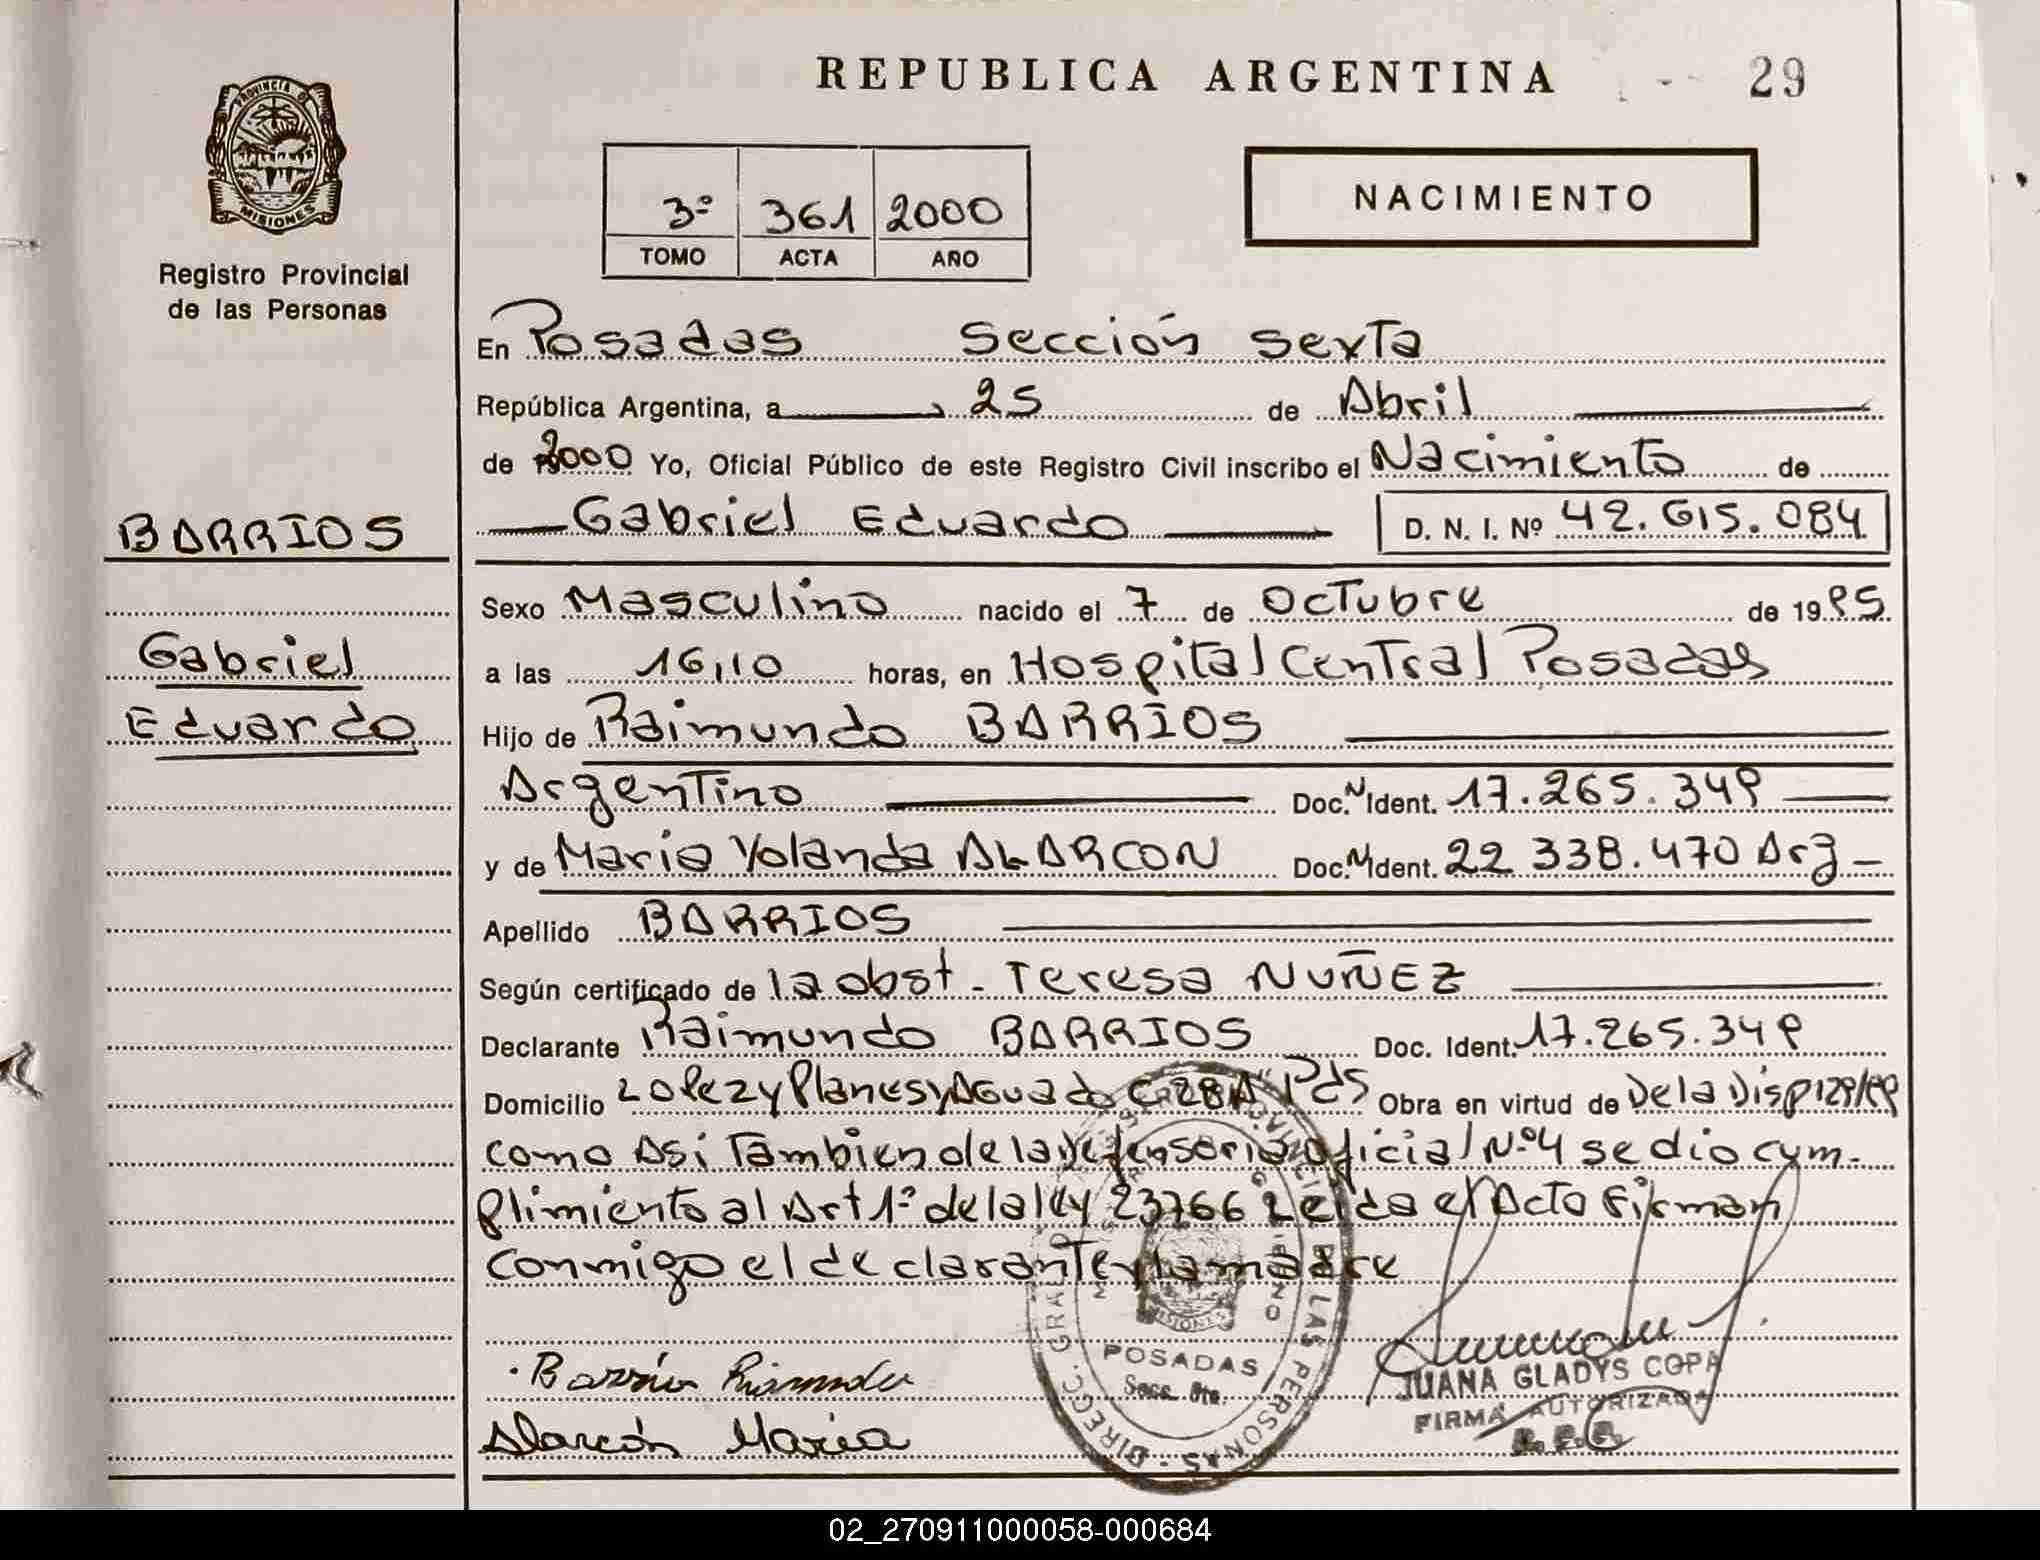 REPUBLICA ARGENTINA
29
PROVINCIA DE
MISIONES
Registro Provincial
de las Personas
3º 361 2000
TOMO ACTA AÑO
NACIMIENTO
En Posadas Sección Sexta
República Argentina, a 25 de Abril
de 2000 Yo, Oficial Público de este Registro Civil inscribo el Nacimiento de
Gabriel Eduardo D. N. I. Nº 42.615.084
BARRIOS
Gabriel
Eduardo
Sexo Masculino nacido el 7 de Octubre de 1995
a las 16,10 horas, en Hospital Central Posadas
Hijo de Raimundo BARRIOS
Argentino Doc. N Ident. 17.265.349
y de Maria Yolanda ALARCON Doc. N Ident. 22 338.470 Arg
Apellido BARRIOS
Según certificado de la obst. Teresa NUÑEZ
Declarante Raimundo BARRIOS Doc. Ident. 17.265.349
Domicilio Lopez y Planes y Aguado C 28 "A" Pds Obra en virtud de De la Disp 129/99
como Asi Tambien de la Defensoria Oficial Nº 4 se dio cum-
plimiento al Art 1º de la ley 23766 Leida el Acto Firman
conmigo el declarante y la madre
Barrio
Alarcón Maria
DIREC. GRAL. PROVINCIAL DE LAS PERSONAS
MISIONES
POSADAS
Secc. 6ta.
JUANA GLADYS COPA
FIRMA AUTORIZADA
02_270911000058-000684